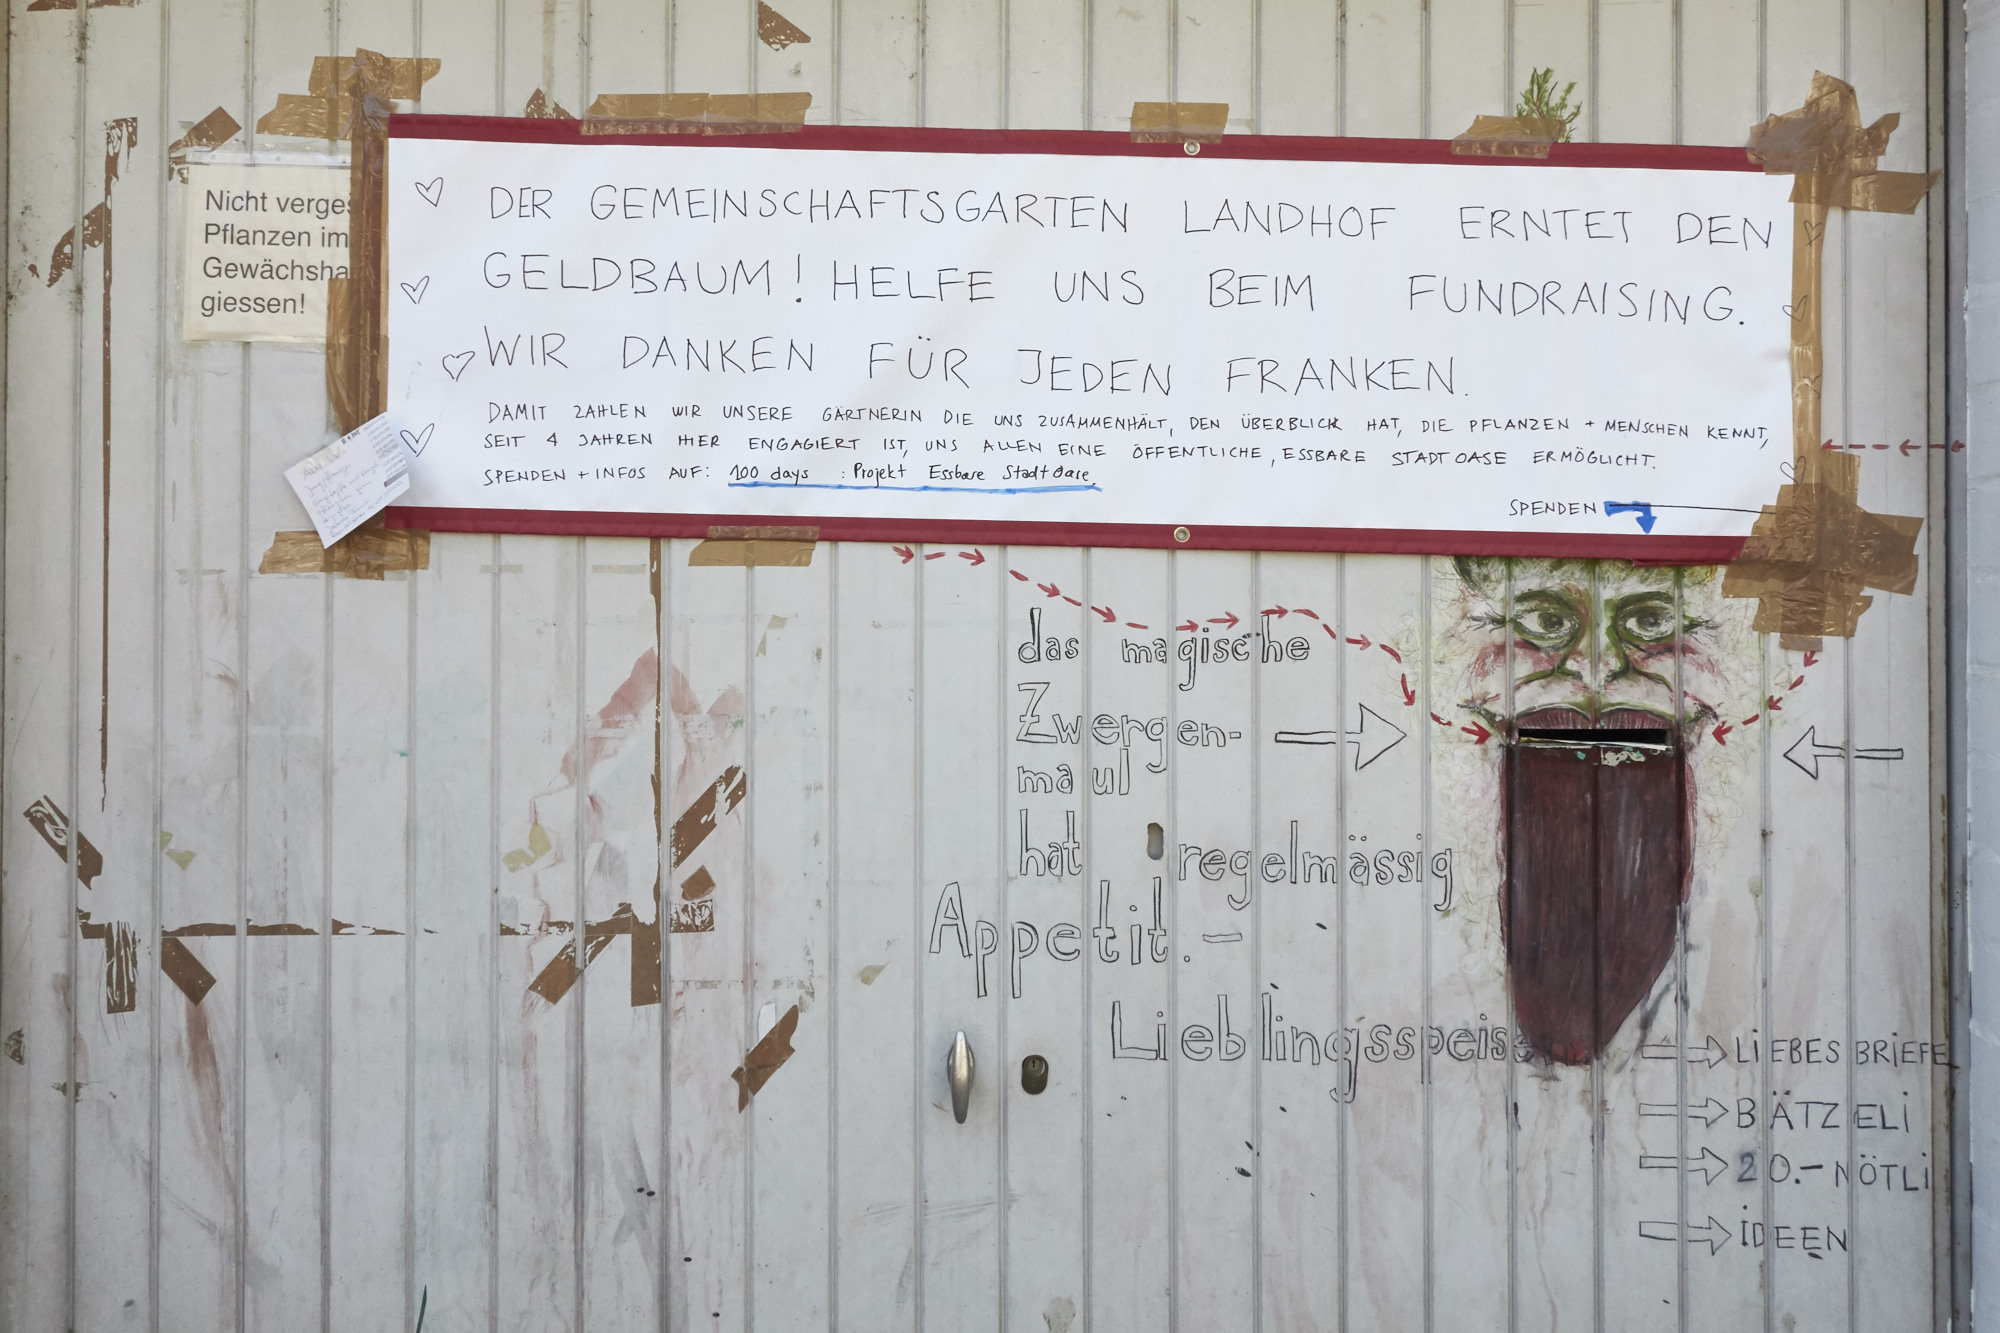 Nicht verges
Pflanzen im
Gewächsha
giessen!
DER GEMEINSCHAFTSGARTEN LANDHOF ERNTET DEN
GELDBAUM! HELFE UNS BEIM FUNDRAISING.
WIR DANKEN FÜR JEDEN FRANKEN.
DAMIT ZAHLEN WIR UNSERE GÄRTNERIN DIE UNS ZUSAMMENHÄLT, DEN ÜBERBLICK HAT, DIE PFLANZEN + MENSCHEN KENNT,
SEIT 4 JAHREN HIER ENGAGIERT IST, UNS ALLEN EINE ÖFFENTLICHE, ESSBARE STADTOASE ERMÖGLICHT.
SPENDEN + INFOS AUF: 100 days : Projekt Essbare StadtOase.
SPENDEN
das magische
Zwergen-
maul
hat regelmässig
Appetit.-
Lieblingsspeise
LiEBESBRiEFE
BÄTZELi
20.- NÖTLi
iDEEN